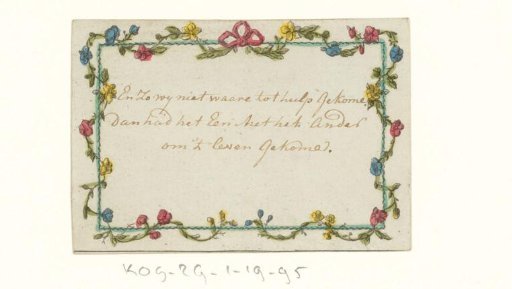 En Zo wy niet waare tot hulp Gekome,
Dan had het Een het Ander
om 't leven Gekomen.
KOG-ZG-1-19-95